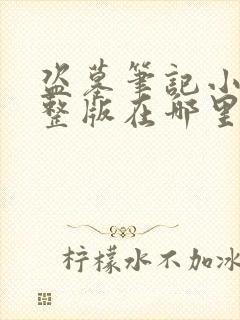 盗墓筆記小
整版在哪里
柠檬水不加冰